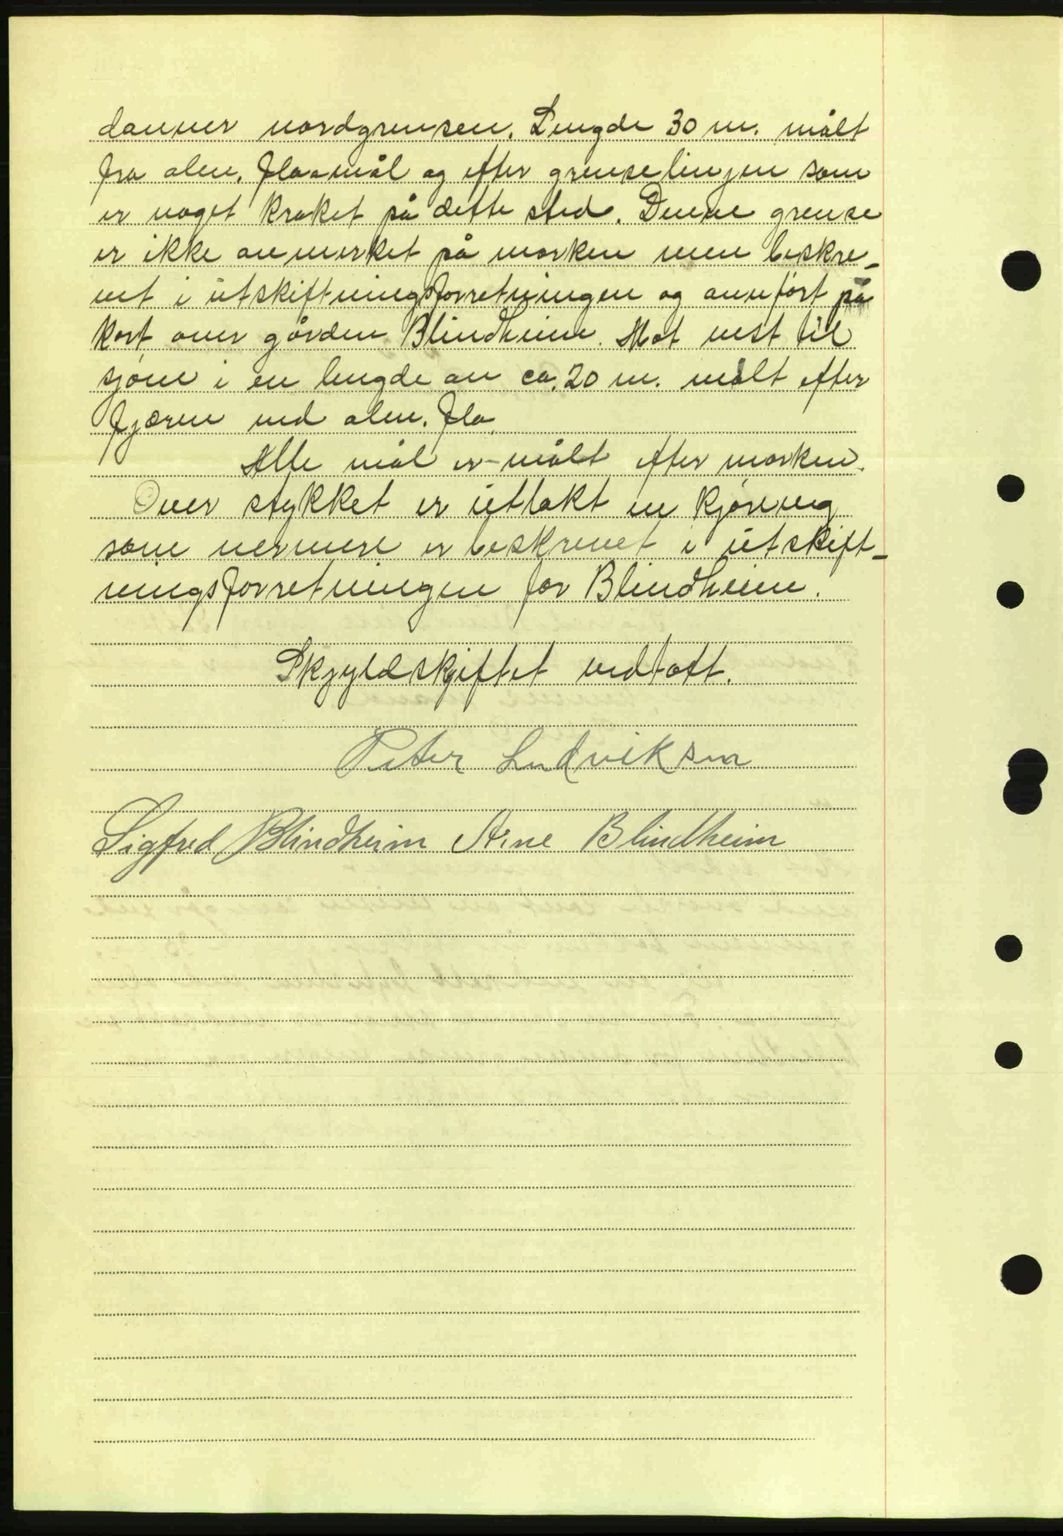 danner nordgrensen. Lengde 30 m. målt
fra alm. floamål og efter grenselinjen som
er noget kroket på dette sted. Denne grense
er ikke anmerket på marken men beskre-
vet i utskiftningsforretningen og annført på
kart over gården Blindheim. Mot vest til
sjøen i en lengde av ca. 20 m. målt efter
fjæren ved alm. flo.
Alle mål er målt efter marken.
Over stykket er utlakt en kjørveg
som nermere er beskrevet i utskift-
ningsforretningen for Blindheim.
Skyldskiftet vedtatt.
Peter Ludviksen
Sigfred Blindheim Arne Blindheim